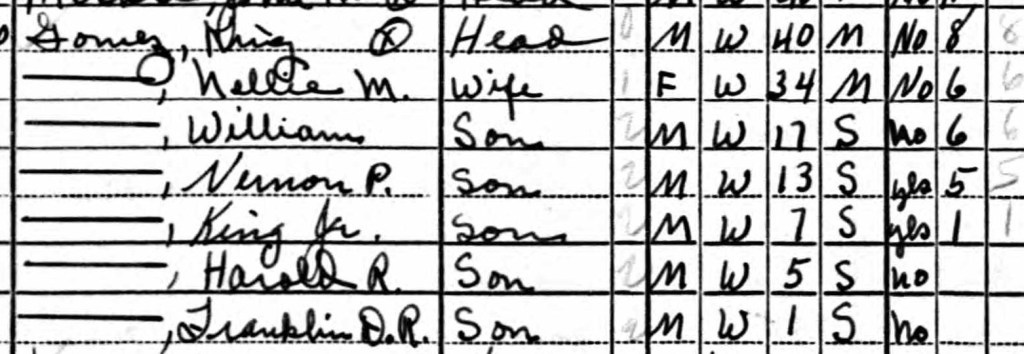 Gomez, King Ⓧ Head 0 M W 40 M No 8 8
———, Nellie M. Wife 1 F W 34 M No 6 6
———, William Son 2 M W 17 S no 6 6
———, Vernon P. Son 2 M W 13 S yes 5 5
———, King Jr. Son 2 M W 7 S yes 1 1
———, Harold R. Son 2 M W 5 S no
———, Franklin D.R. Son 2 M W 1 S no